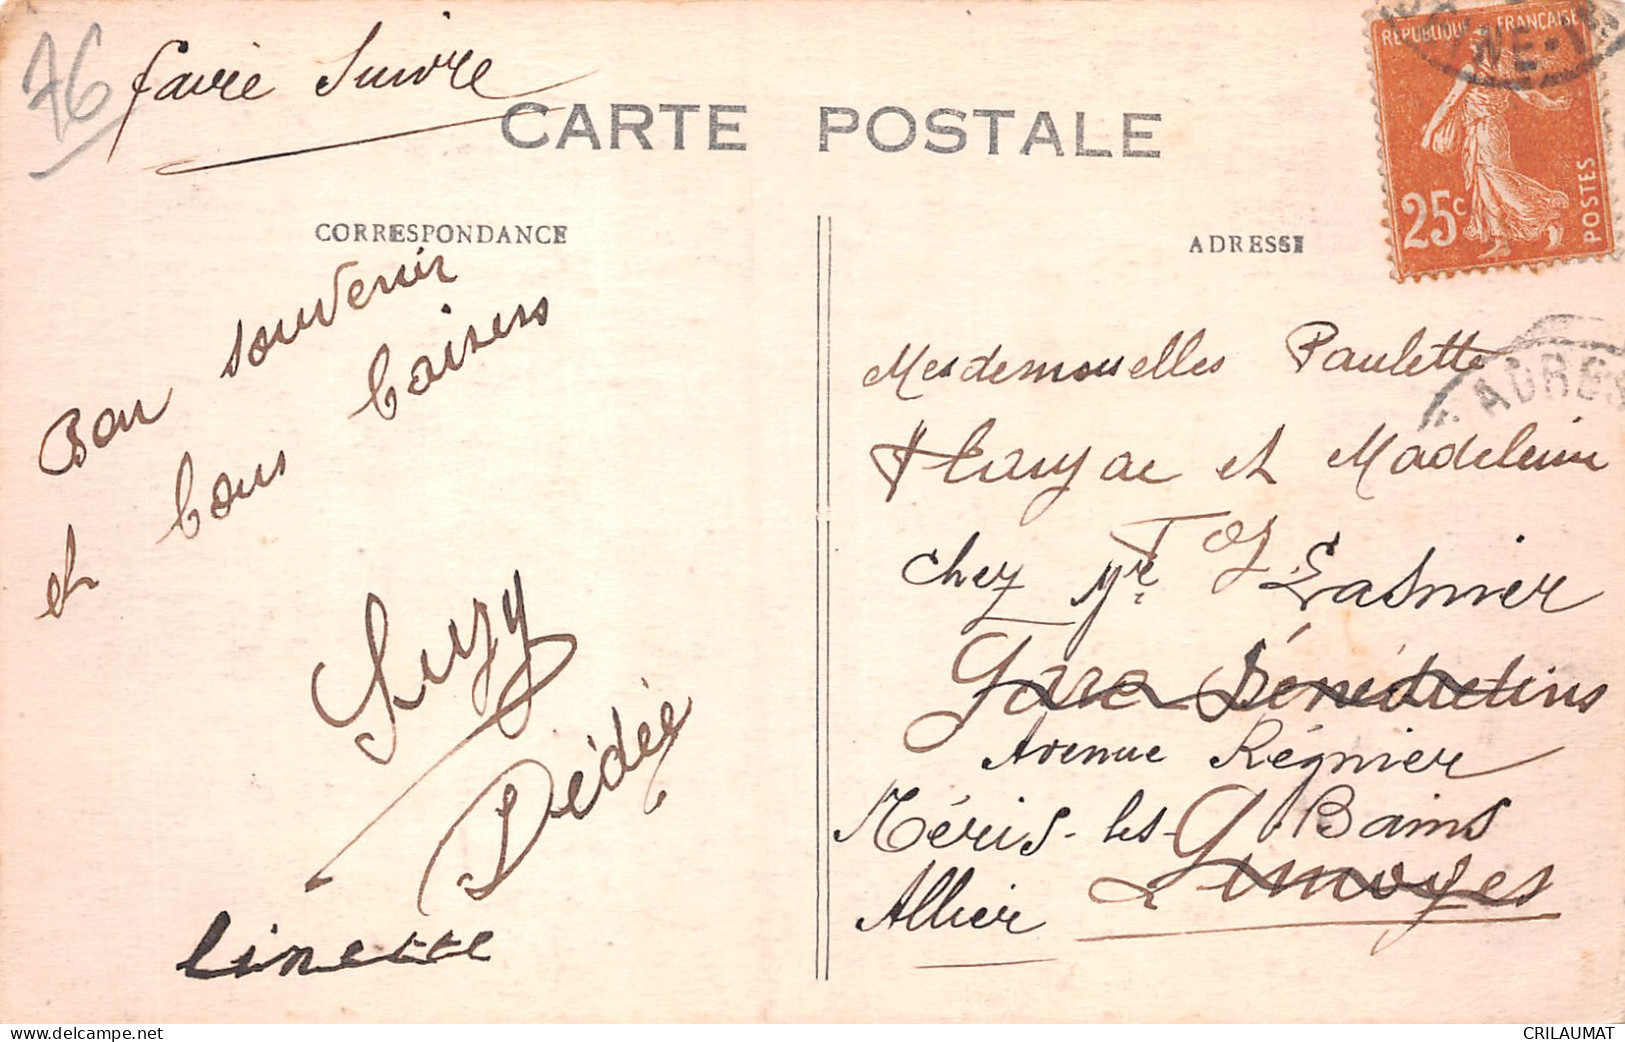 76
faire Suivre
CARTE POSTALE
RÉPUBLIQUE FRANÇAISE
25c
POSTES
CORRESPONDANCE
ADRESSE
Bon souvenir
et bons baisers
Suzy
Dédée
linette
Mesdemoiselles Paulette
et Madeleine
chez Mr Lasnier
Gare Bénédictins
Avenue Régnier
Néris-les-Bains
Limoges
Allier
CRILAUMAT